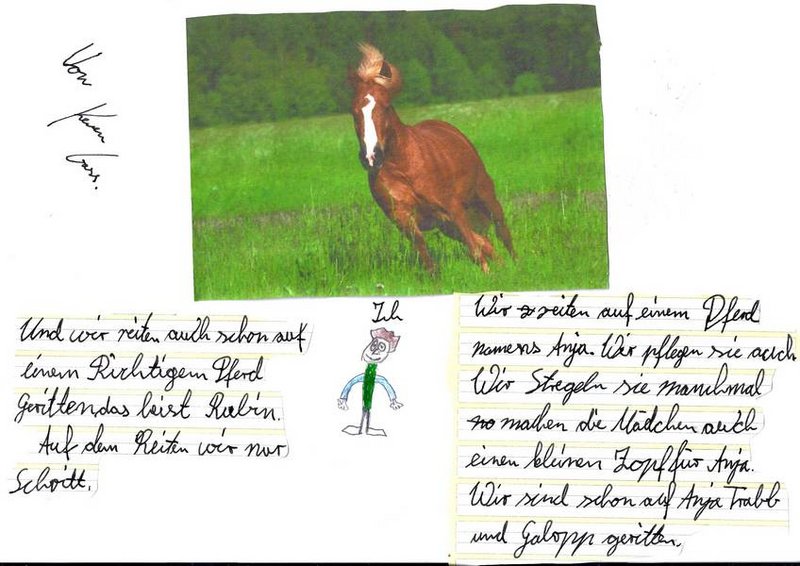 Von
Keven
Lars.
Ich
Und wir reiten auch schon auf
einem Richtigem Pferd
Gerittendas heist Rubin.
Auf dem Reiten wir nur
Schritt.
Wir reiten auf einem Pferd
namens Anja. Wir pflegen sie auch
Wir Stregeln sie manchmal
machen die Mädchen auch
einen kleinen Zopf für Anja.
Wir sind schon auf Anja Trabb
und Galopp geritten.